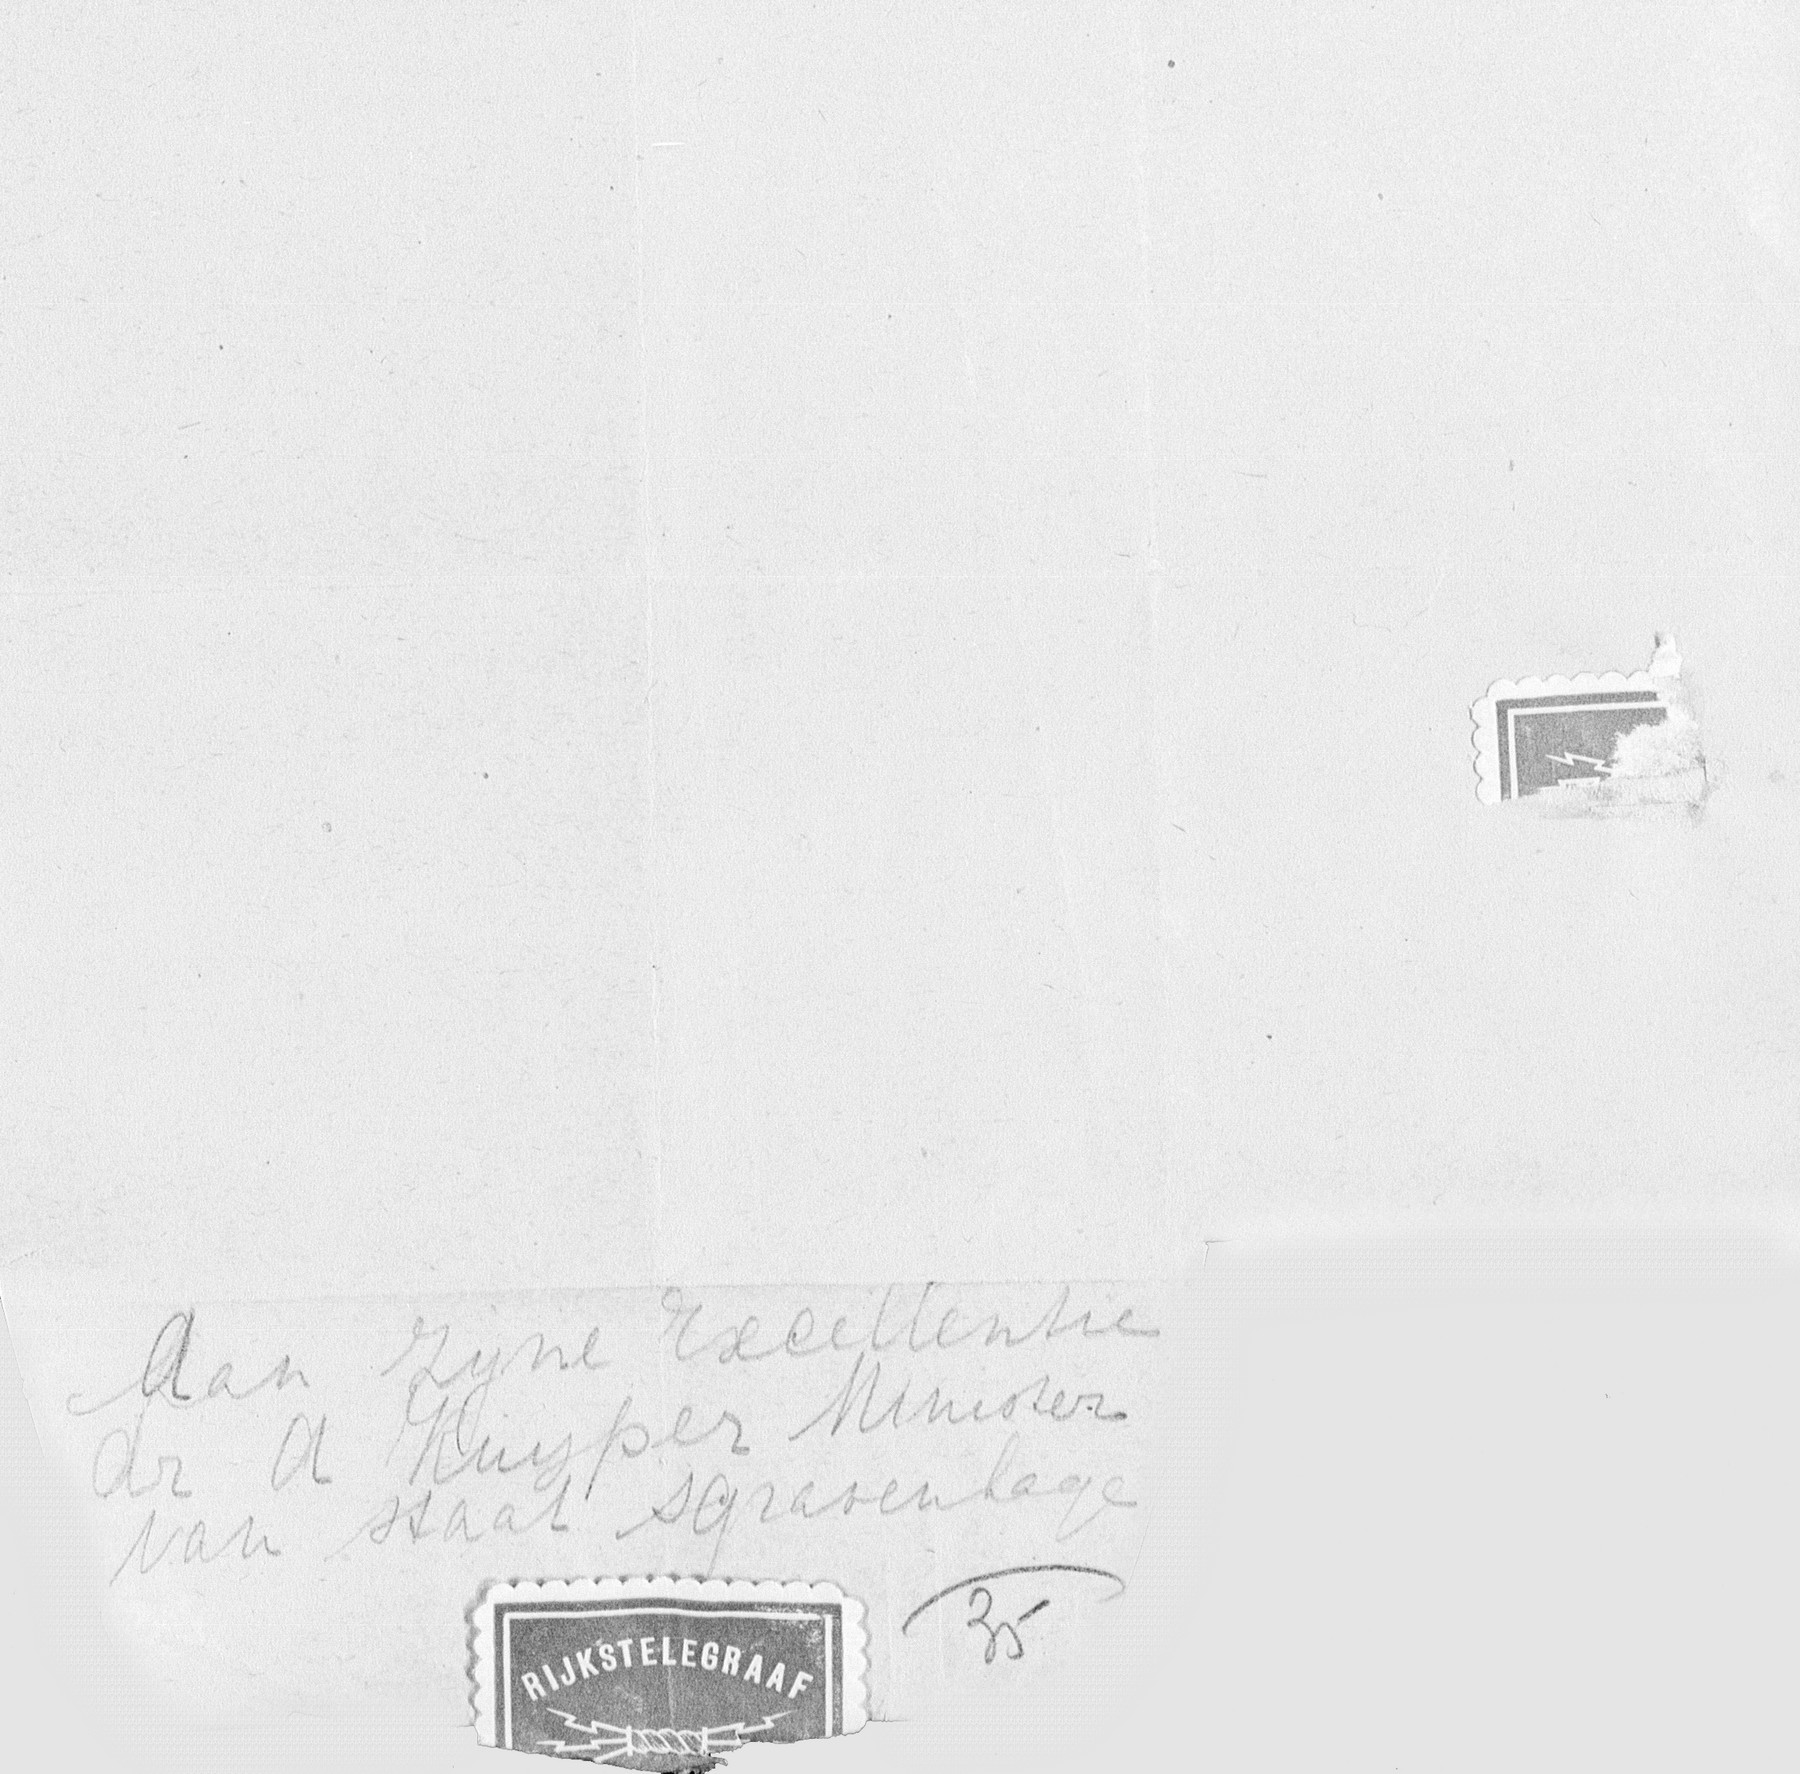 Aan Zijne Excellentie
dr A Kuyper Minister
van staat sgravenhage
35
RIJKSTELEGRAAF